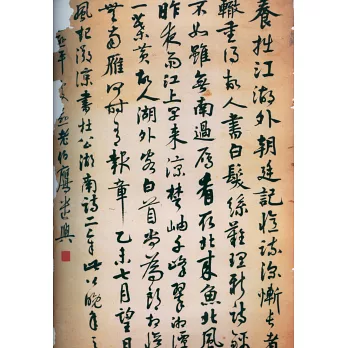 養拙江湖外朝廷記憶疏深慚長者
轍重得故人書白髮絲難理新詩錦
不如雖無南過雁看取北來魚北風
昨夜雨江上早來涼楚岫千峰翠湘潭
一葉黃故人湖外客白首尚為郎相憶
無南雁何時有報章乙未七月望日
風起微涼書杜公湖南詩二章此公晚年之
老伯